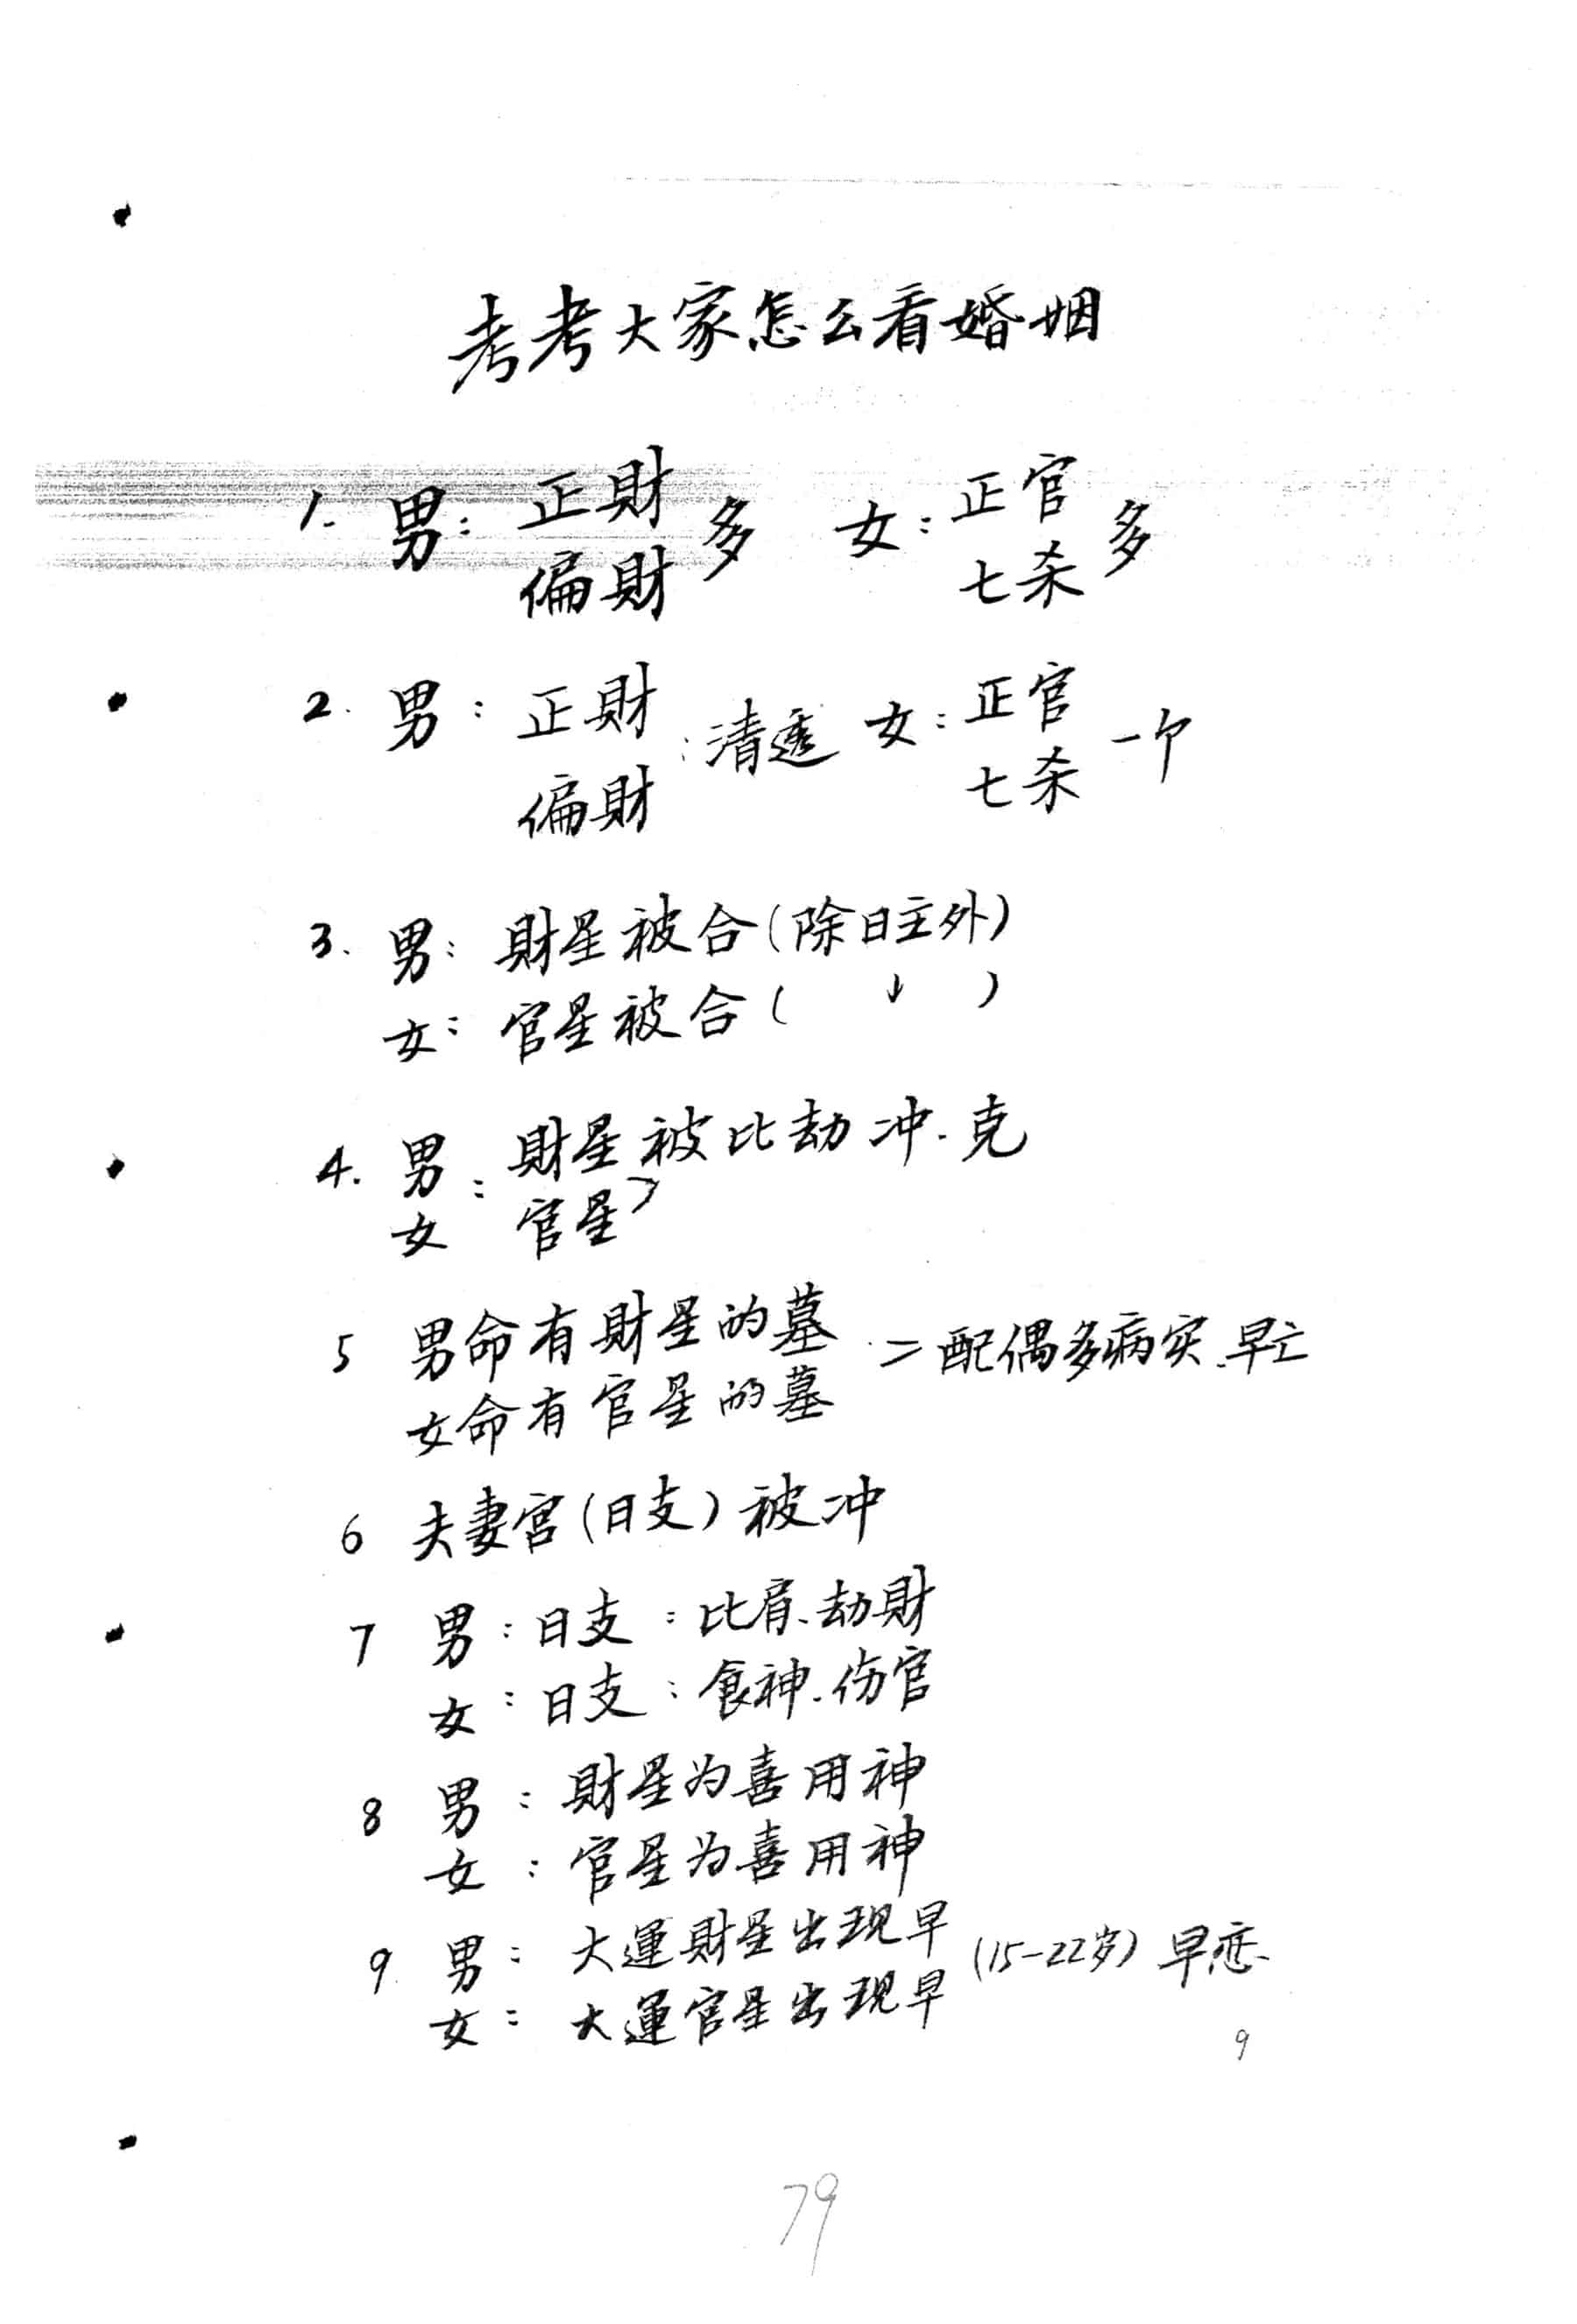 考考大家怎么看婚姻
1. 男: 正財 多 女: 正官 多
偏財 七杀
2. 男: 正財 :清透 女: 正官 一个
偏財 七杀
3. 男: 財星被合(除日主外)
女: 官星被合( ↓ )
4. 男: 財星被比劫冲.克
女 官星>
5 男命有財星的墓 = 配偶多病灾.早亡
女命有官星的墓
6 夫妻宫(日支)被冲
7 男:日支:比肩、劫財
女:日支:食神.伤官
8 男:財星为喜用神
女:官星为喜用神
9. 男: 大運財星出现早 (15-22岁) 早恋.
女: 大運官星出现早
9
79